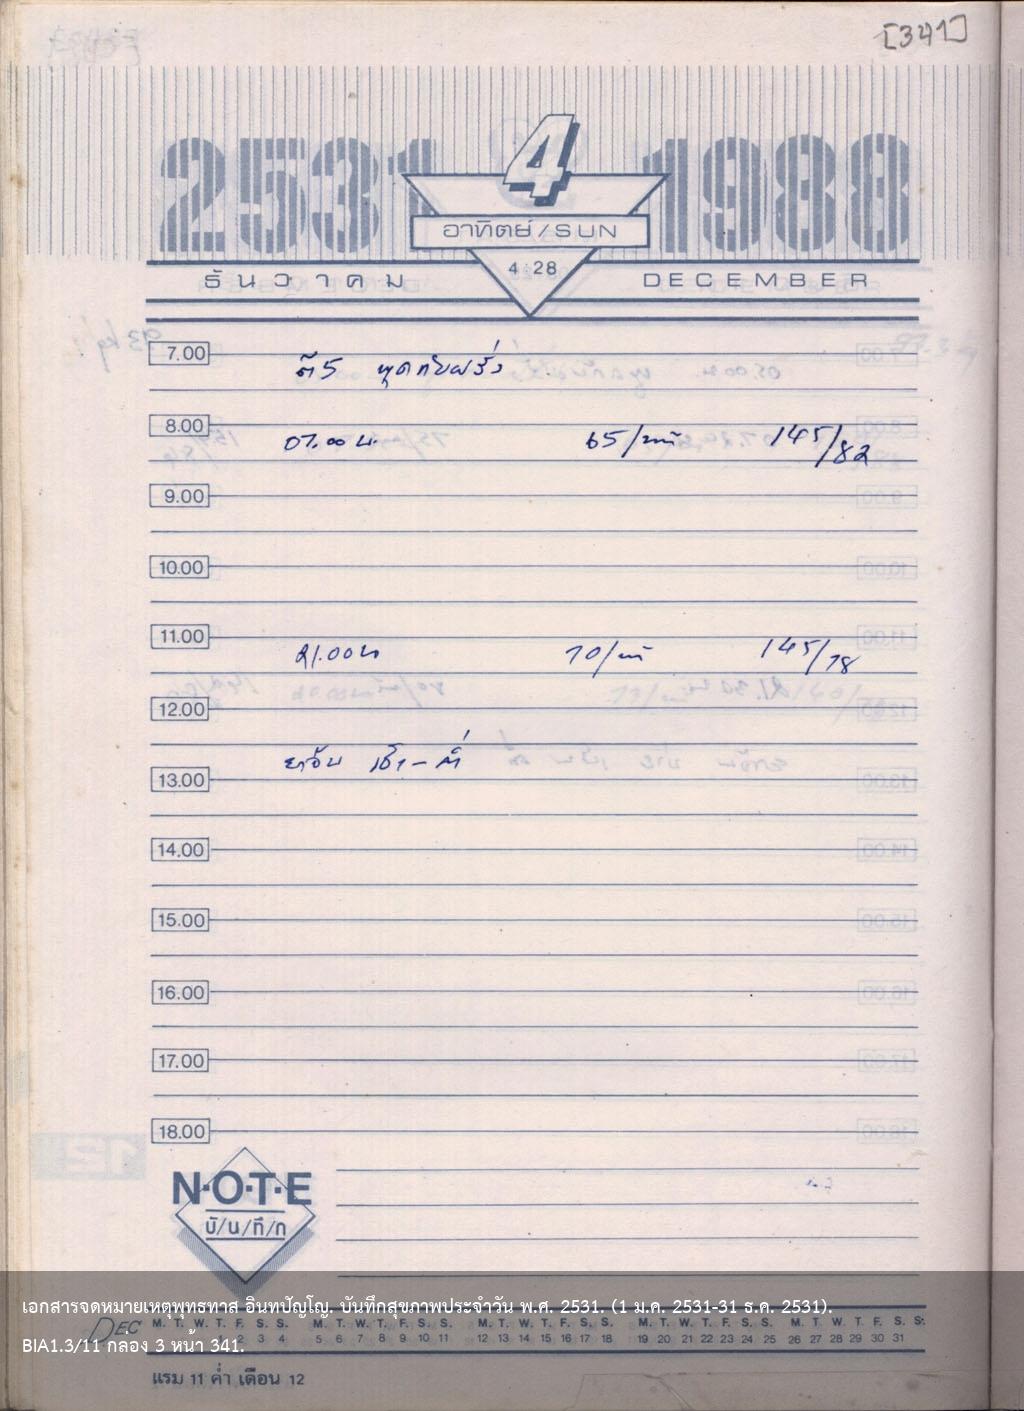 [341]
2531 4 1988
อาทิตย์/SUN
4·28
ธันวาคม DECEMBER
7.00
ตี5 พูดกับฝรั่ง
8.00
07.00 น. 65/นาที 145/82
9.00
10.00
11.00
21.00น 70/นที 145/78
12.00
ยาจีน เช้า-ค่ำ
13.00
14.00
15.00
16.00
17.00
18.00
N·O·T·E
บั/น/ทึ/ก
เอกสารจดหมายเหตุพุทธทาส อินทปัญโญ. บันทึกสุขภาพประจำวัน พ.ศ. 2531. (1 ม.ค. 2531-31 ธ.ค. 2531).
DEC M. T. W. T. F. S. S. M. T. W. T. F. S. S. M. T. W. T. F. S. S. M. T. W. T. F. S. S. M. T. W. T. F. S. S.
1 2 3 4 5 6 7 8 9 10 11 12 13 14 15 16 17 18 19 20 21 22 23 24 25 26 27 28 29 30 31
BIA1.3/11 กล่อง 3 หน้า 341.
แรม 11 ค่ำ เดือน 12